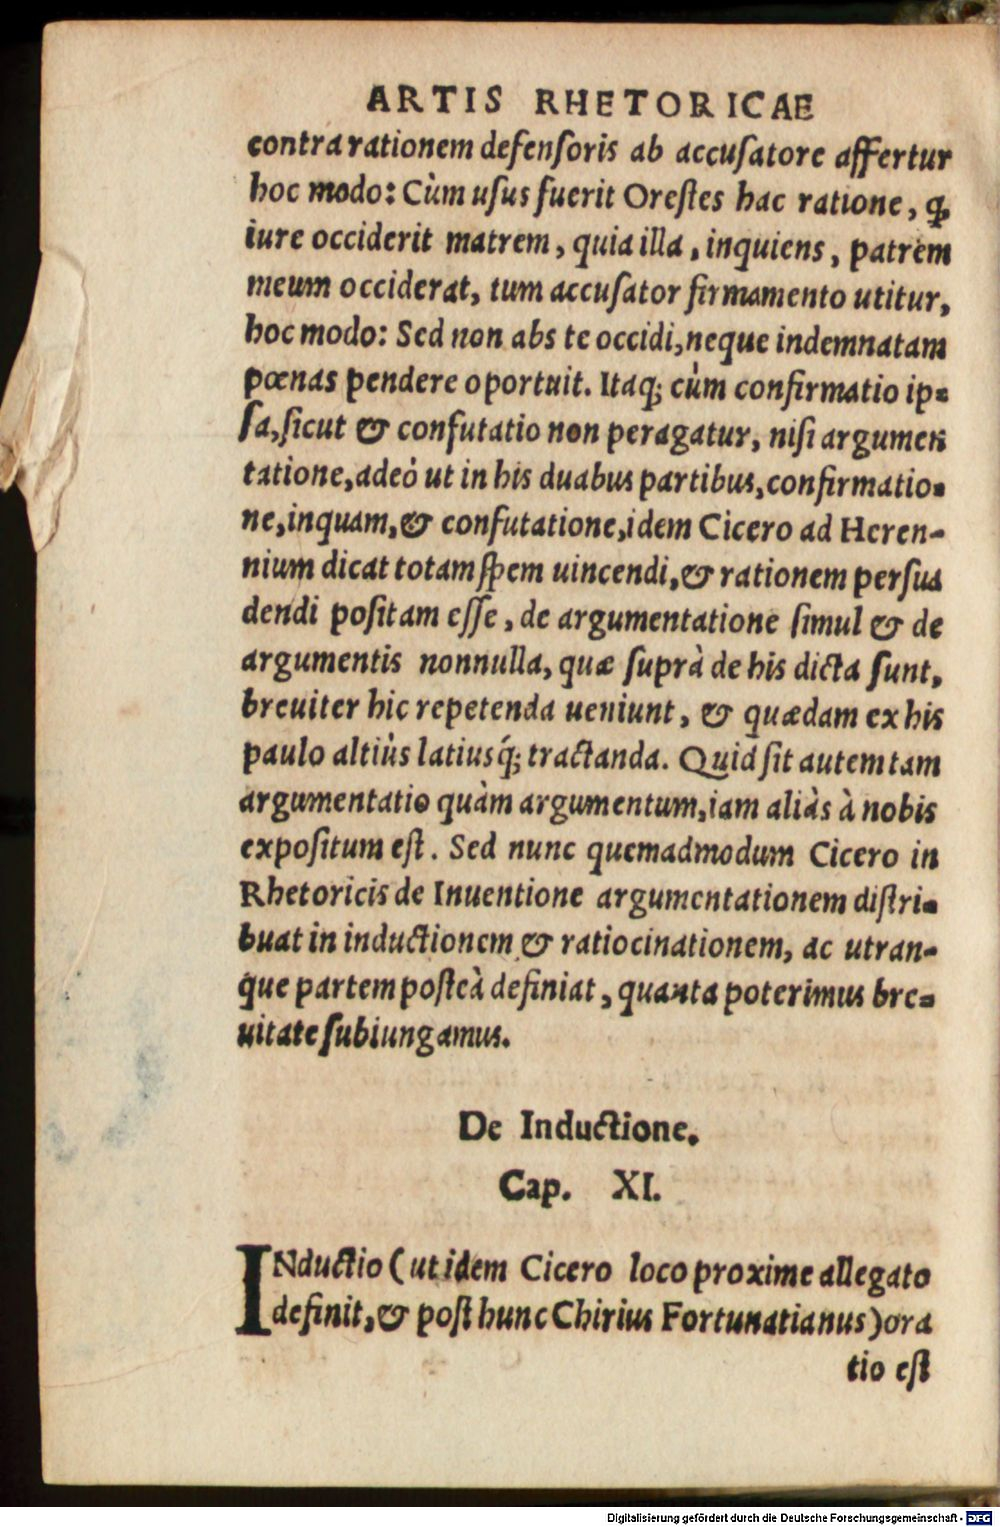 ARTIS RHETORICAE
contra rationem defenſoris ab accuſatore affertur
hoc modo: Cùm uſus fuerit Oreſtes hac ratione, ꝙ
iure occiderit matrem, quia illa, inquiens, patrem
meum occiderat, tum accuſator firmamento utitur,
hoc modo: Sed non abs te occidi, neque indemnatam
pœnas pendere oportuit. Itaq; cùm confirmatio ip-
ſa, ſicut & confutatio non peragatur, niſi argumen
tatione, adeò ut in his duabus partibus, confirmatio-
ne, inquam, & confutatione, idem Cicero ad Heren-
nium dicat totam ſpem uincendi, & rationem perſua
dendi poſitam eſſe, de argumentatione ſimul & de
argumentis nonnulla, quæ ſuprà de his dicta ſunt,
breuiter hic repetenda ueniunt, & quædam ex his
paulo altiùs latiusq́; tractanda. Quid ſit autem tam
argumentatio quàm argumentum, iam aliàs à nobis
expoſitum eſt. Sed nunc quemadmodum Cicero in
Rhetoricis de Inuentione argumentationem diſtri-
buat in inductionem & ratiocinationem, ac utran-
que partem poſteà definiat, quanta poterimus bre-
uitate ſubiungamus.
De Inductione.
Cap. XI.
INductio (ut idem Cicero loco proxime allegato
definit, & poſt hunc Chirius Fortunatianus) ora
tio eſt
Digitalisierung gefördert durch die Deutsche Forschungsgemeinschaft - DFG